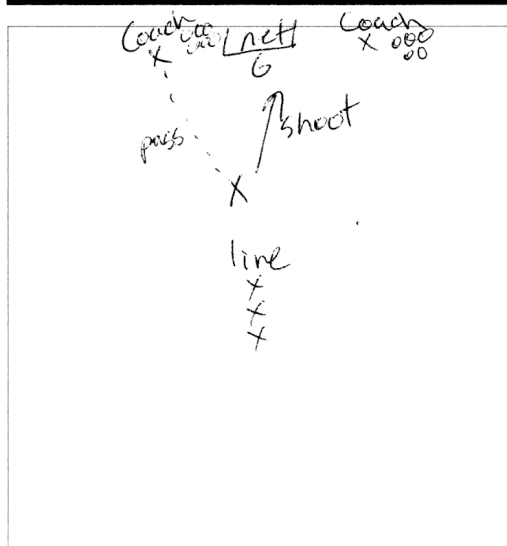 Coach net Coach
X G X
pass shoot
X
line
X
X
X